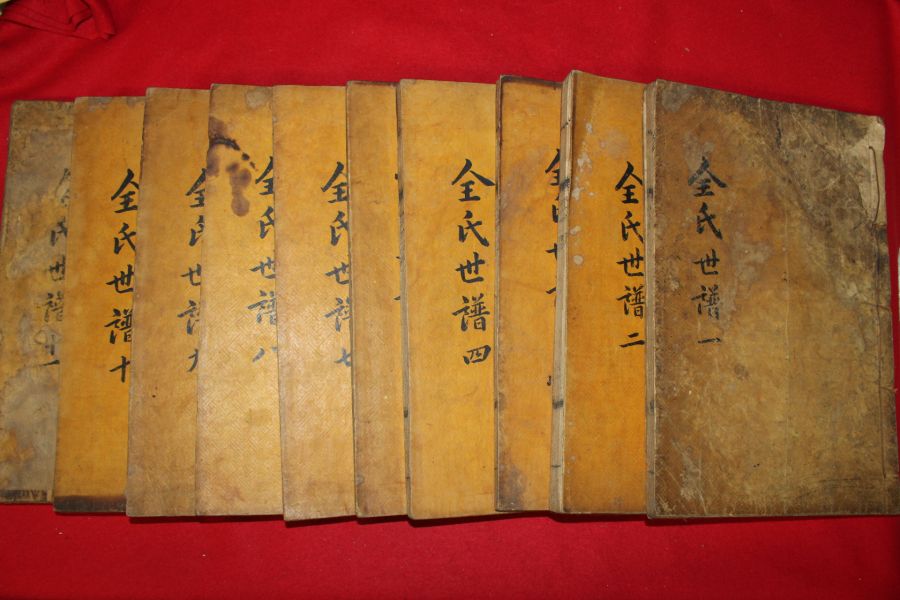 全氏世譜一
全氏世譜二
全氏世譜四
全氏世譜七
全氏世譜八
全氏世譜九
全氏世譜十
全氏世譜十一